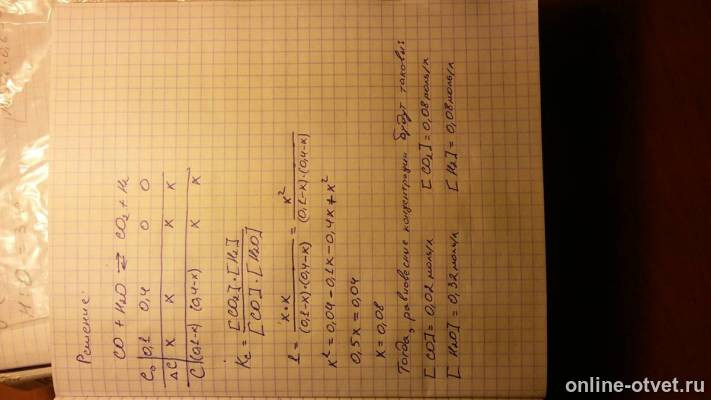 Решение:
CO + H2O ⇄ CO2 + H2
C0 0,1 0,4 0 0
ΔC x x x x
C (0,1-x) (0,4-x) x x
Kc = [CO2]·[H2] / [CO]·[H2O]
1 = x·x / (0,1-x)·(0,4-x) = x² / (0,1-x)·(0,4-x)
x² = 0,04 - 0,1x - 0,4x + x²
0,5x = 0,04
x = 0,08
Тогда, равновесные концентрации будут таковы:
[CO] = 0,02 моль/л [CO2] = 0,08 моль/л
[H2O] = 0,32 моль/л [H2] = 0,08 моль/л
online-otvet.ru